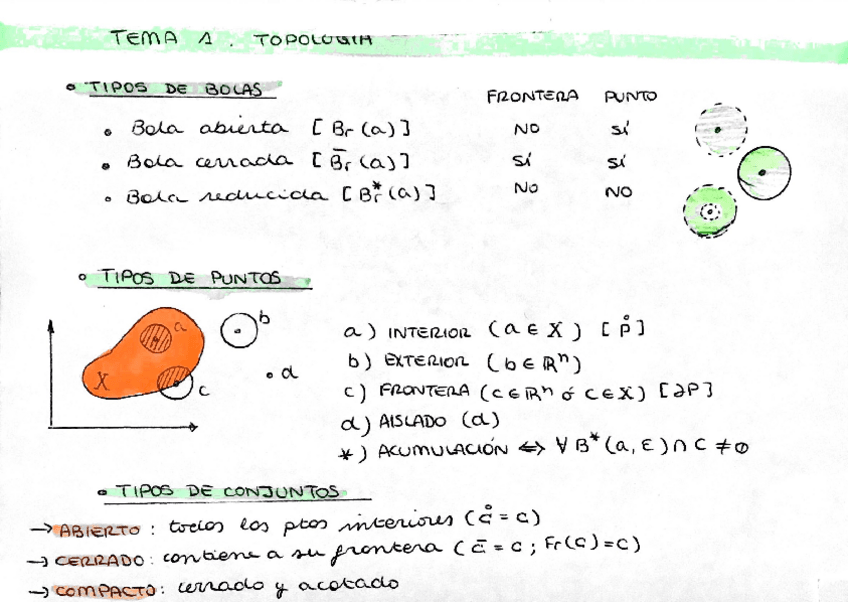 TEMA 1. TOPOLOGIA
• TIPOS DE BOLAS
FRONTERA PUNTO
• Bola abierta [ Br (a) ] NO SÍ
• Bola cerrada [ B̄r (a) ] SÍ SÍ
• Bola reducida [ B*r (a) ] NO NO
• TIPOS DE PUNTOS
a
b
X
c
• d
a) INTERIOR (a ∈ X) [ P̊ ]
b) EXTERIOR (b ∈ ℝⁿ)
c) FRONTERA (c ∈ ℝⁿ ó c ∈ X) [∂P]
d) AISLADO (d)
*) ACUMULACIÓN ⇔ ∀ B*(a, ε) ∩ C ≠ ∅
• TIPOS DE CONJUNTOS
→ ABIERTO : todos los ptos interiores (c̊ = c)
→ CERRADO : contiene a su frontera (c̄ = c ; Fr(c) = c)
→ COMPACTO : cerrado y acotado